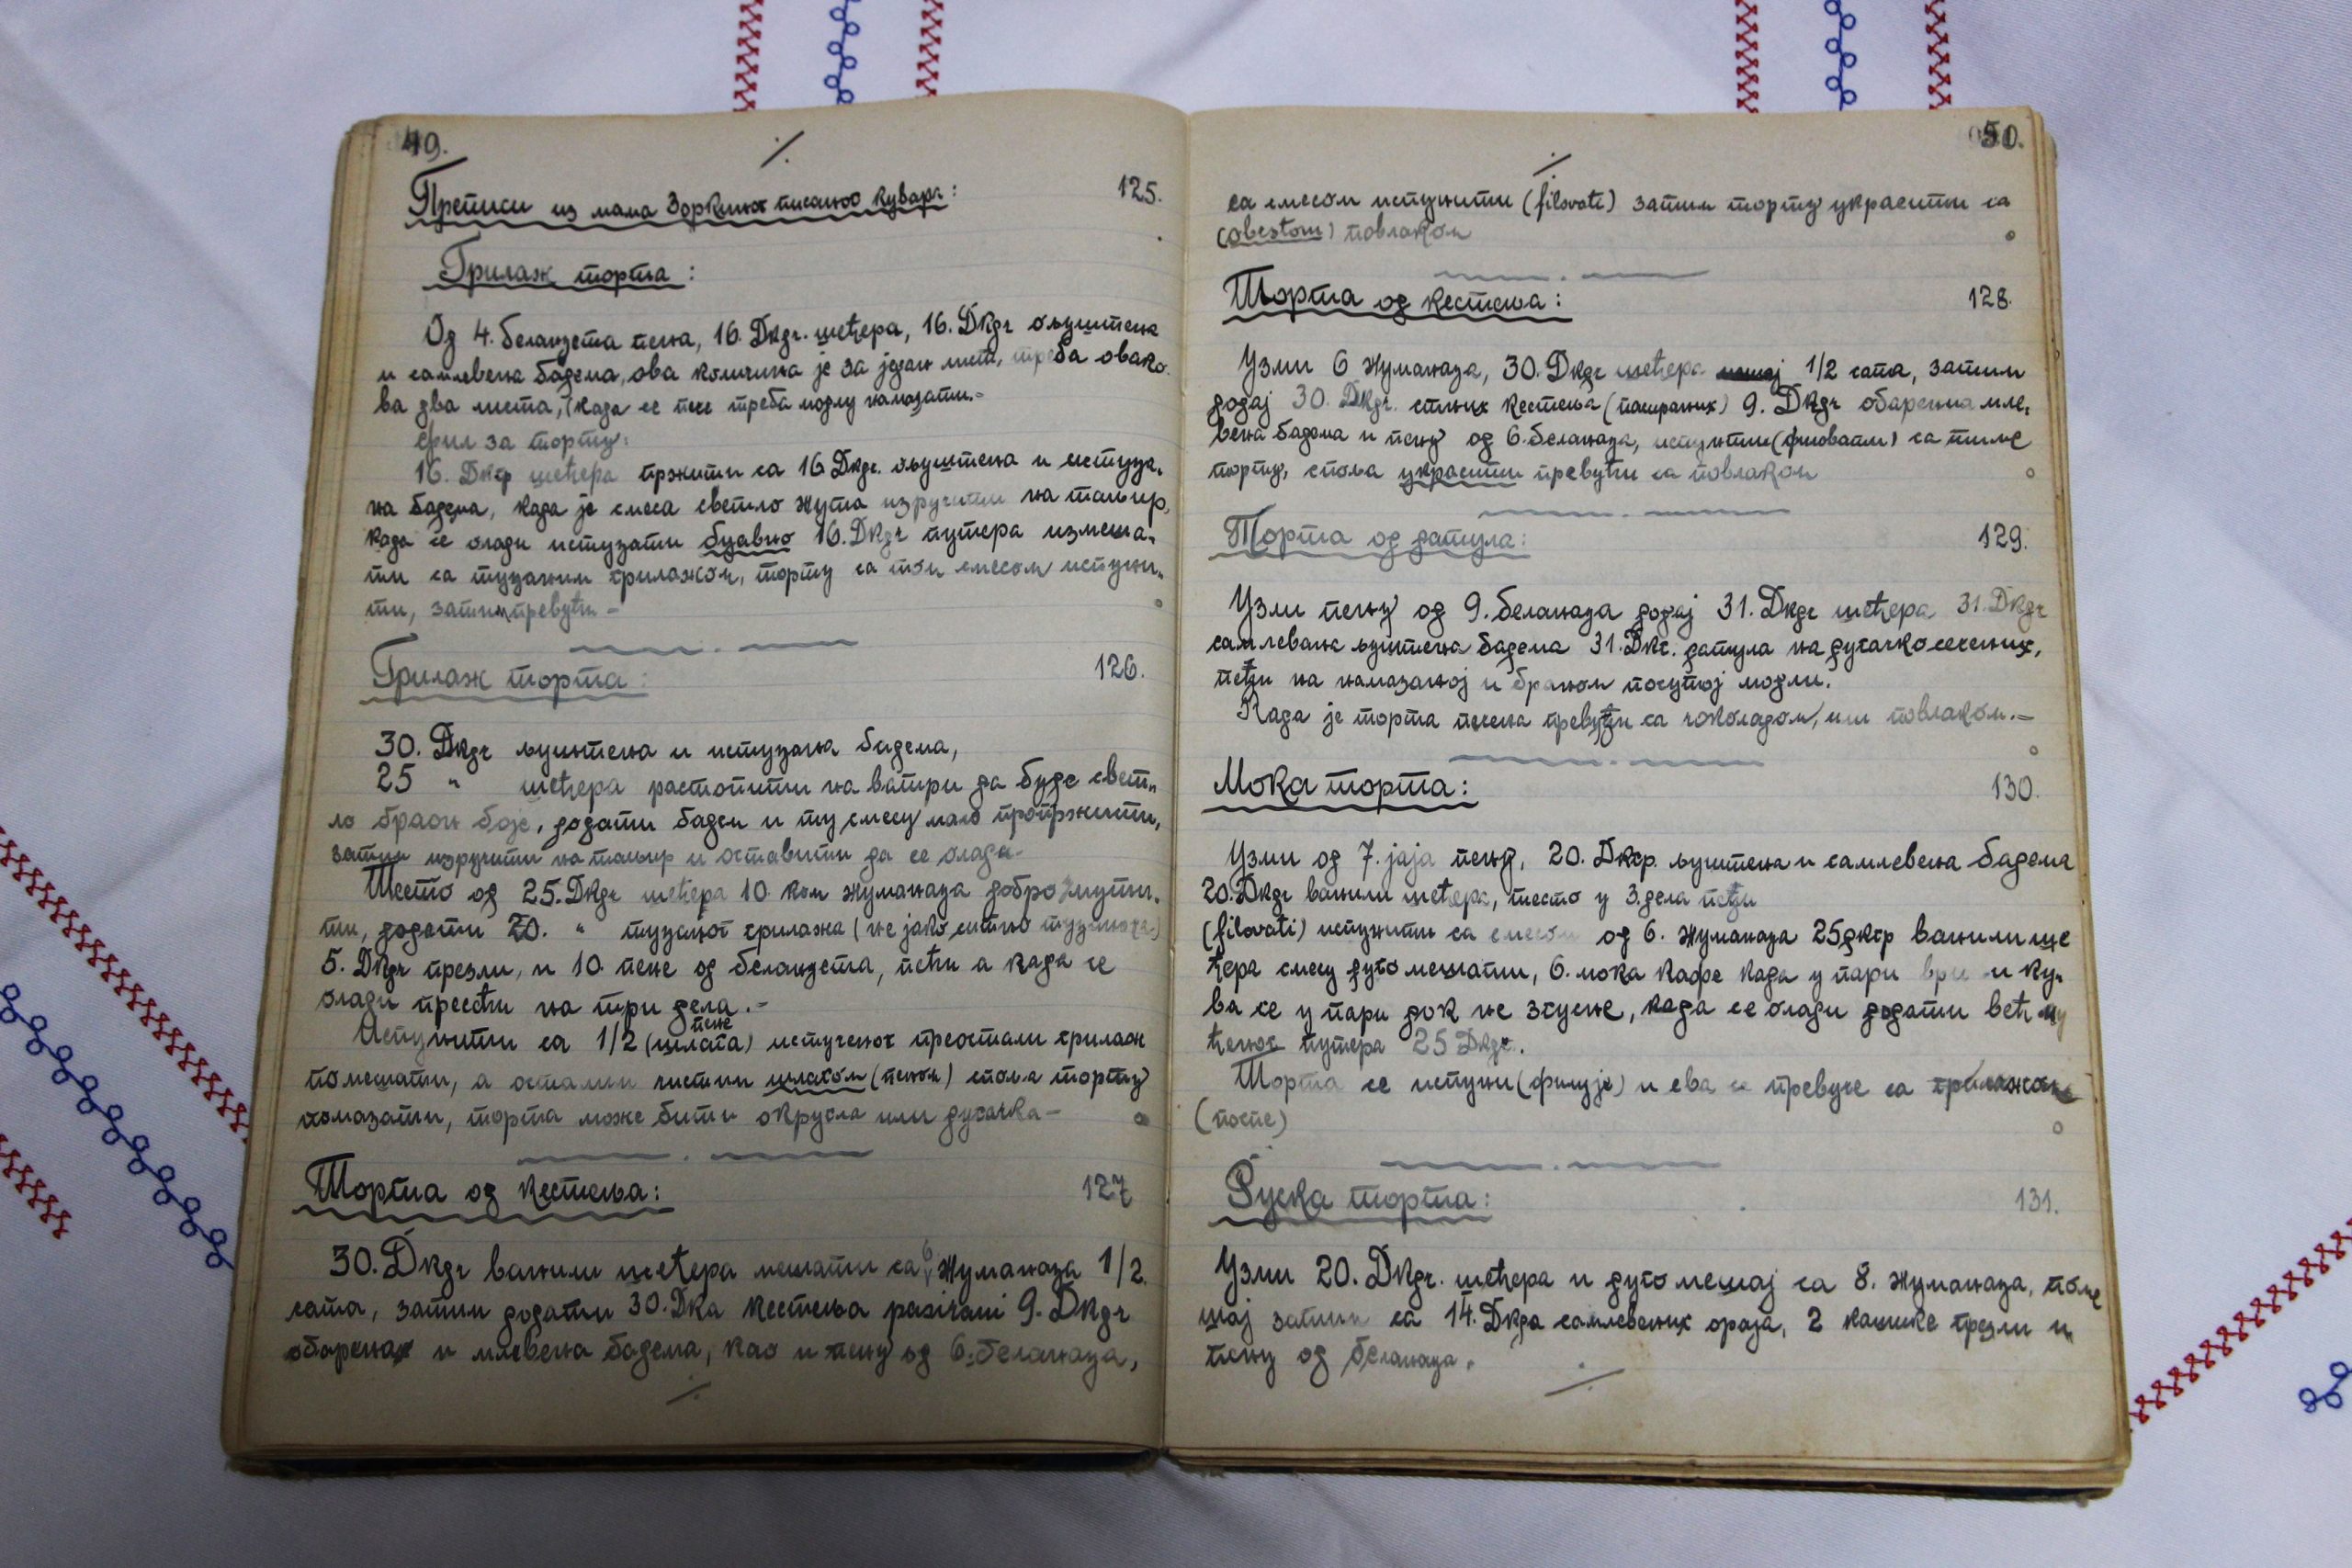 49.
./.
Преписи из мама Зоркиног писаног кувара: 125.
Грилаж торта:
Од 4. беланцета пена, 16. Dkgr. шећера, 16. Dkgr ољуштена
и самлевена бадема, ова количина је за један лист, треба овако-
ва два листа, (када се пече треба модлу намазати.-
Фил за торту:
16. Dkgr шећера пржити са 16 Dkgr. ољуштена и истуца-
на бадема, када је смеса светло жута изручити на тањир,
када се олади истуцати булвно 16. Dkgr путера измеша-
ти са туцаним грилажом, торту са том смесом испуни-
ти, затим превући -
Грилаж торта: 126.
30. Dkgr љуштена и истуцана бадема,
25 " шећера растопити на ватри да буде свет-
ло браон боје, додати бадем и ту смесу мало пропржити,
затим изручити на тањир и оставити да се олади-
Тесто од 25. Dkgr шећера 10 ком жуманаца добро мути-
ти, додати 20. " туцаног грилажа (не јако ситно туцанога)
5. Dkgr презли, и 10 пене од беланцета, пећи а када се
олади пресећи на три дела.-
пене
Испунити са 1/2 (шлага) истученог преостали грилаж
помешати, а осталим чистим шлагом (пеном) споља торту
намазати, торта може бити округла или дугачка-
Торта од кестења: 127
30. Dkgr ванили шећера мешати са 6 жуманаца 1/2
сата, затим додати 30. Dka кестења pasirani 9. Dkgr
обарена и млевена бадема, као и пену од 6. беланаца,
./.
50.
./.
са смесом испунити (filovati) затим торту украсити са
(obestom) повлаком
Торта од кестења: 128.
Узми 6 жуманаца, 30. Dkgr шећера мешај 1/2 сата, затим
додај 30. Dkgr. ситних кестења (пасираних) 9. Dkgr обарена мле-
вена бадема и пену од 6. беланаца, испунити (филовати) са тиме
торту, споља украсити превући са повлаком
Торта од датула: 129.
Узми пену од 9. беланаца додај 31. Dkgr шећера 31. Dkgr
самлевена љуштена бадема 31. Dkg. датула на дугачко сечених,
пећи на намазаној и браном посутој модли.
Када је торта печена превући са чоколадом, или повлаком.-
Мока торта: 130.
Узми од 7. јаја пену, 20. Dkgr. љуштена и самлевена бадема
20. Dkgr ванили шећера, тесто у 3. дела пећи
(filovati) испунити са смесом од 6. жуманаца 25 дкгр ванили ше
ћера смесу дуго мешати, 6. мока кафе када у пари ври и ку-
ва се у пари док не згусне, када се олади додати већ му
ћеног путера 25 Dkgr.
Торта се испуни (филује) и сва се превуче са грилажом
(поспе)
Руска торта: 131.
Узми 20. Dkgr. шећера и дуго мешај са 8. жуманаца, поме
шај затим са 14. Dkga самлевених ораја, 2 кашике презли и
пену од беланаца.
./.